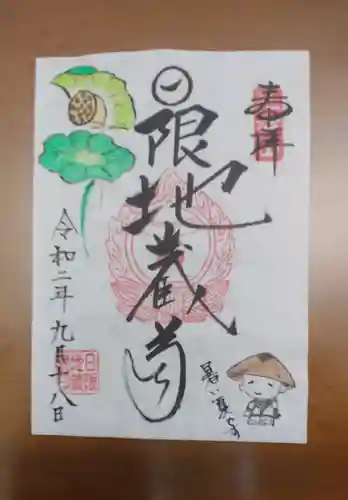 奉拝
日限地蔵尊
令和二年九月十八日
日限
地蔵
暑い夏